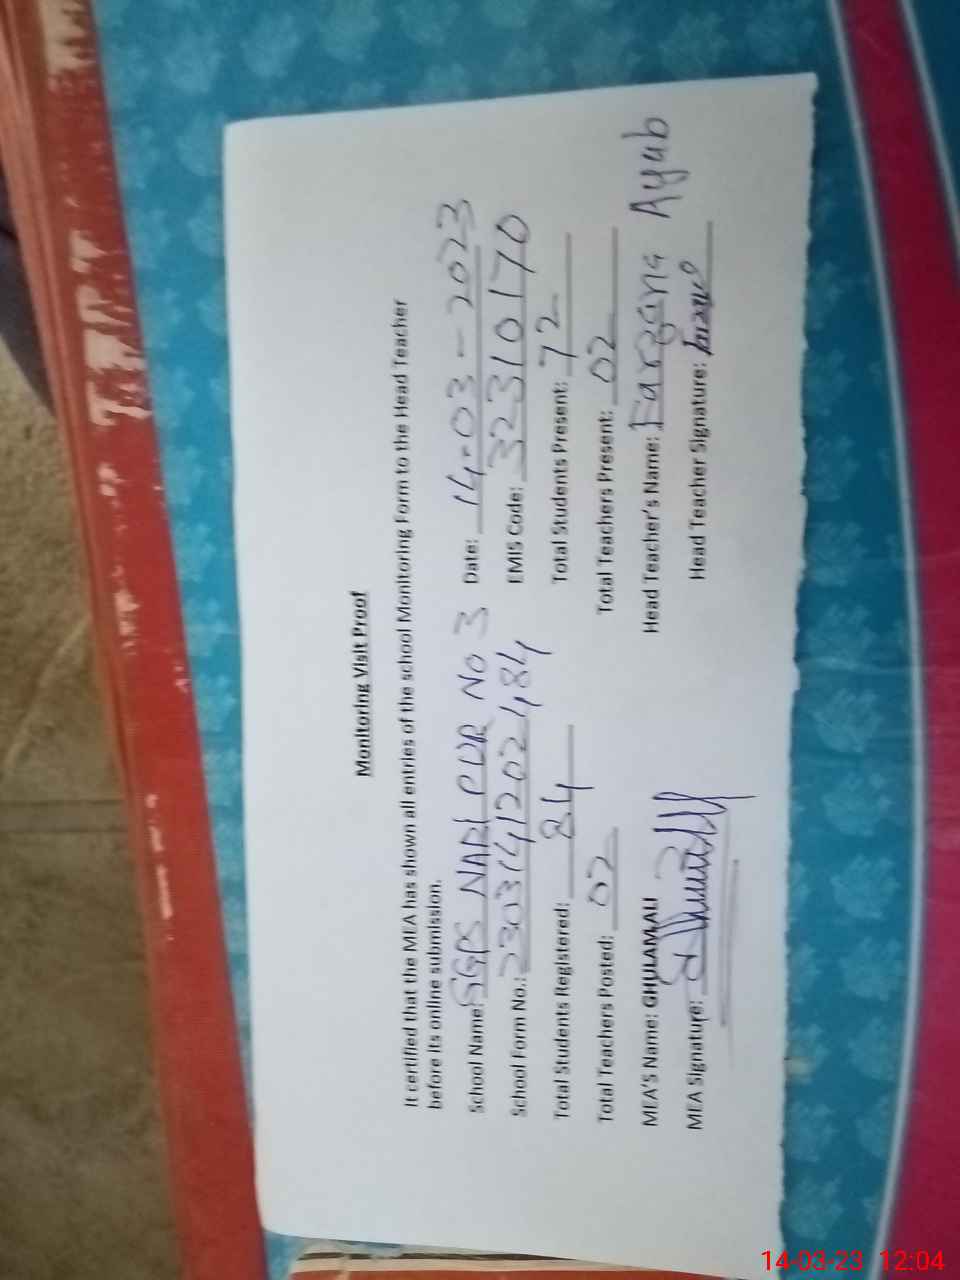 Monitoring Visit Proof
It certified that the MEA has shown all entries of the school Monitoring Form to the Head Teacher
before its online submission.
School Name: GGPS NABI PUR NO 3 Date: 14-03-2023
School Form No.: 2303141202484 EMIS Code: 32310170
Total Students Registered: 84 Total Students Present: 72
Total Teachers Posted: 02 Total Teachers Present: 02
MEA'S Name: GHULAM ALI Head Teacher's Name: Farzana Ayub
MEA Signature: Head Teacher Signature:
14-03-23 12:04